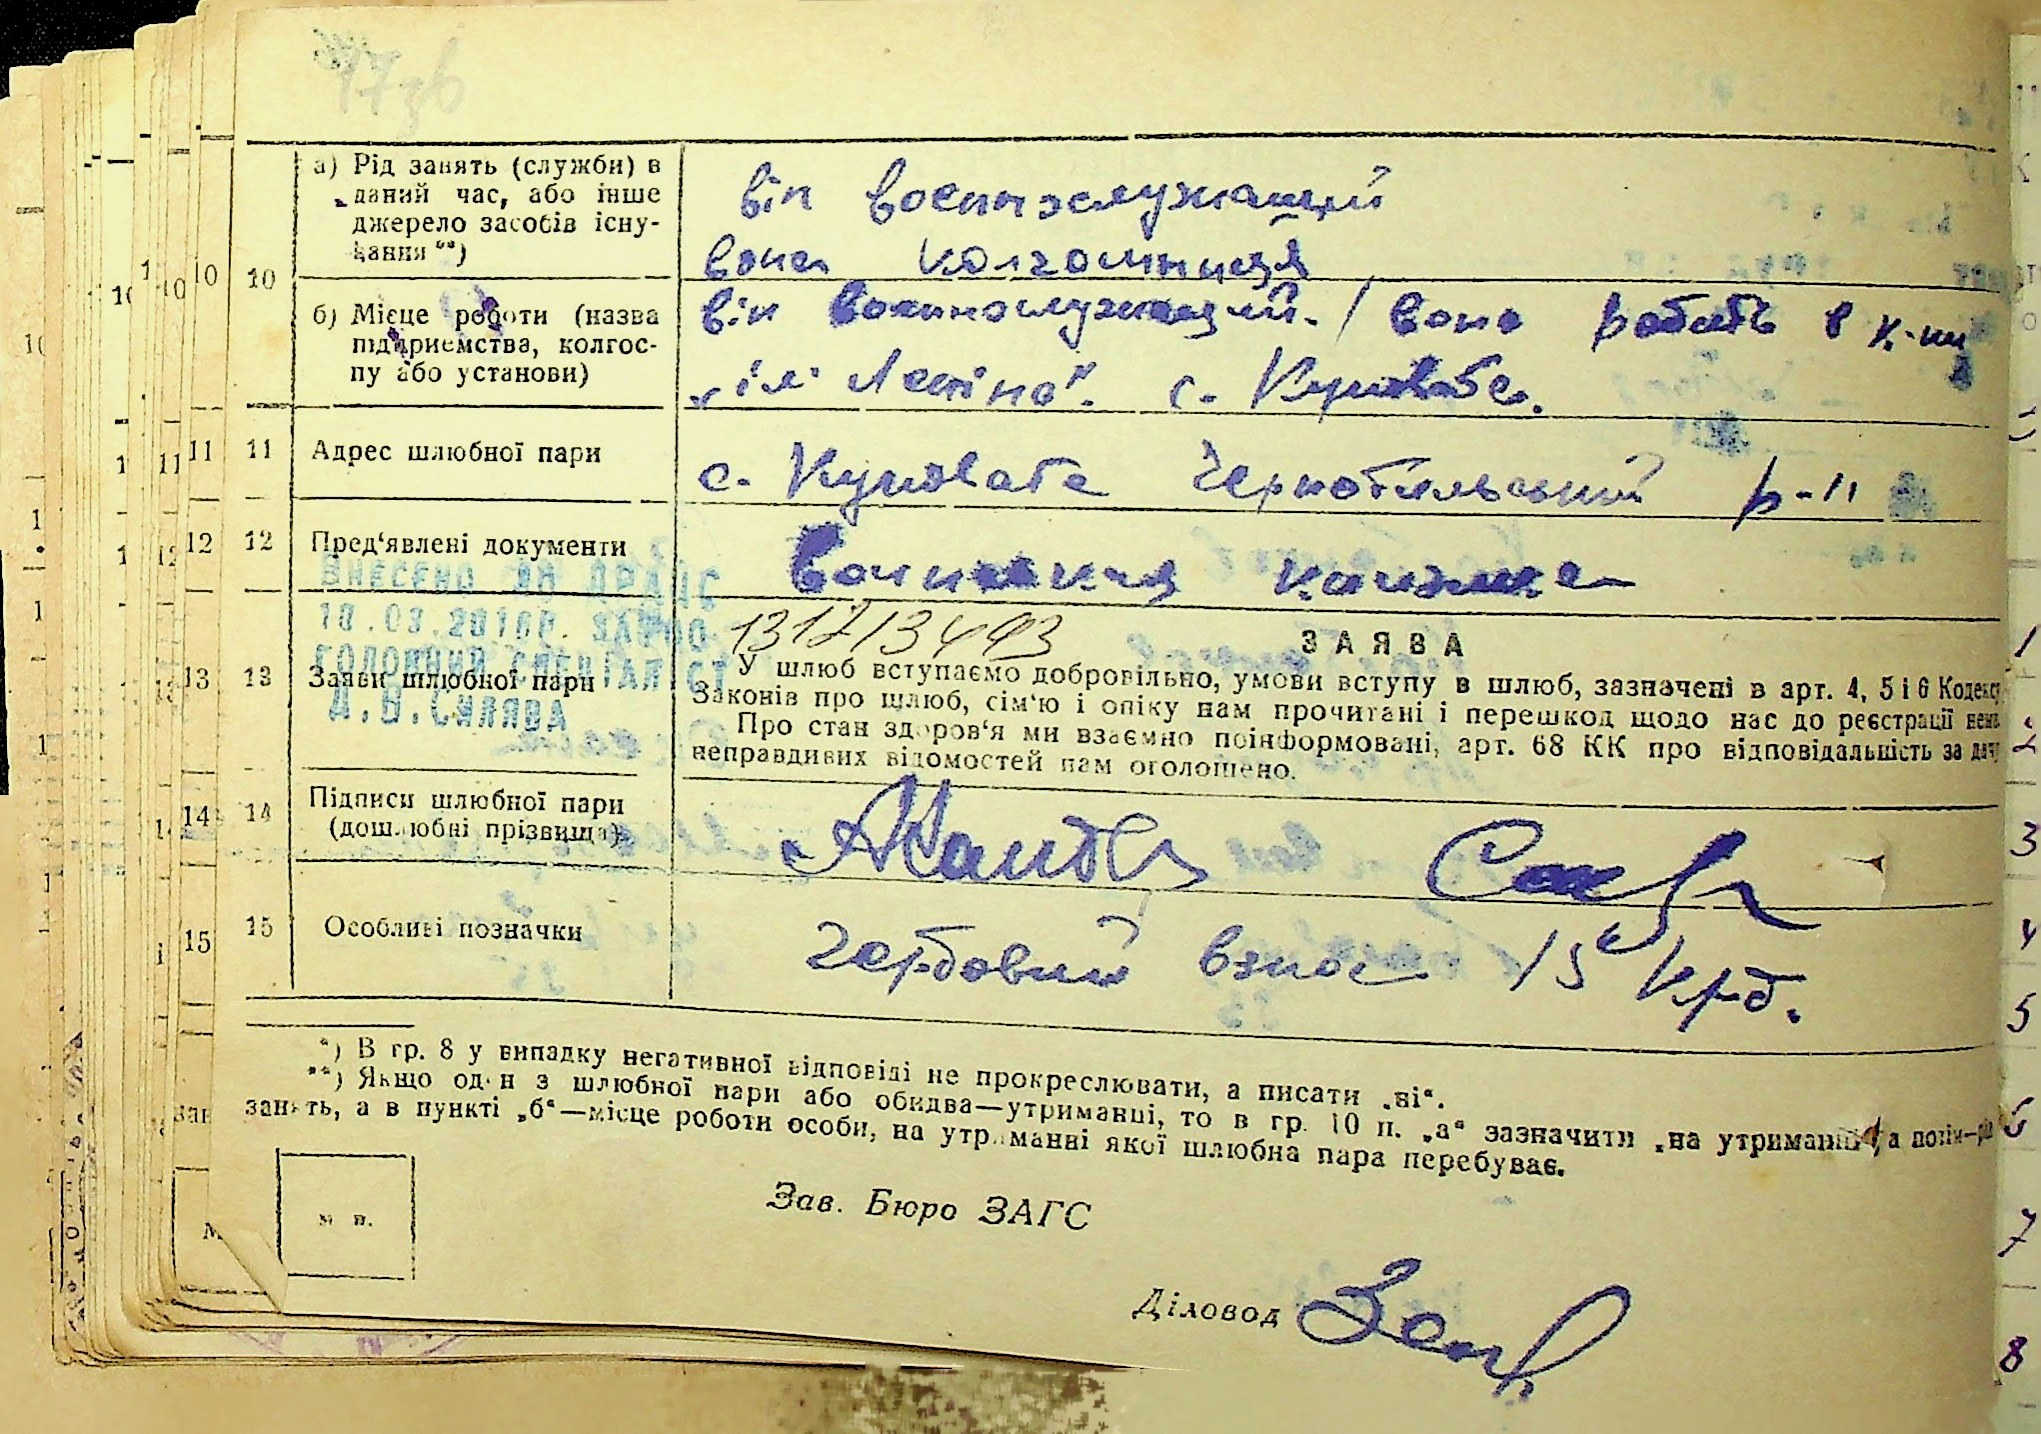 10
а) Рід занять (служби) в
даний час, або інше
джерело засобів існу-
вання **)
він военнослужащий
вона колгоспниця
б) Місце роботи (назва
підприємства, колгос-
пу або установи)
він военнослужащий. / вона робить в к-пи
"ім Леніна". с. Куповате.
11 Адрес шлюбної пари
с. Куповате Чернобильський р-н
12 Пред'явлені документи
книжка
ВНЕСЕНО ДО ДРАЦС
18.03.2010р.
ГОЛОВНИЙ СПЕЦІАЛІСТ
13 Заяви шлюбної пари
ЗАЯВА
У шлюб вступаємо добровільно, умови вступу в шлюб, зазначені в арт. 4, 5 і 6 Кодексу
Законів про шлюб, сім'ю і опіку нам прочитані і перешкод щодо нас до реєстрації нема
Про стан здоров'я ми взаємно поінформовані, арт. 68 КК про відповідальність за дачу
неправдивих відомостей нам оголошено.
14 Підписи шлюбної пари
(дошлюбні прізвища)
15 Особливі позначки
гербовий взнос 15 крб.
*) В гр. 8 у випадку негативної відповіді не прокреслювати, а писати „ні“.
**) Якщо один з шлюбної пари або обидва—утриманці, то в гр. 10 п. „а“ зазначити „на утриманні“, а потім—рід
занять, а в пункті „б“—місце роботи особи, на утриманні якої шлюбна пара перебуває.
м п.
Зав. Бюро ЗАГС
Діловод